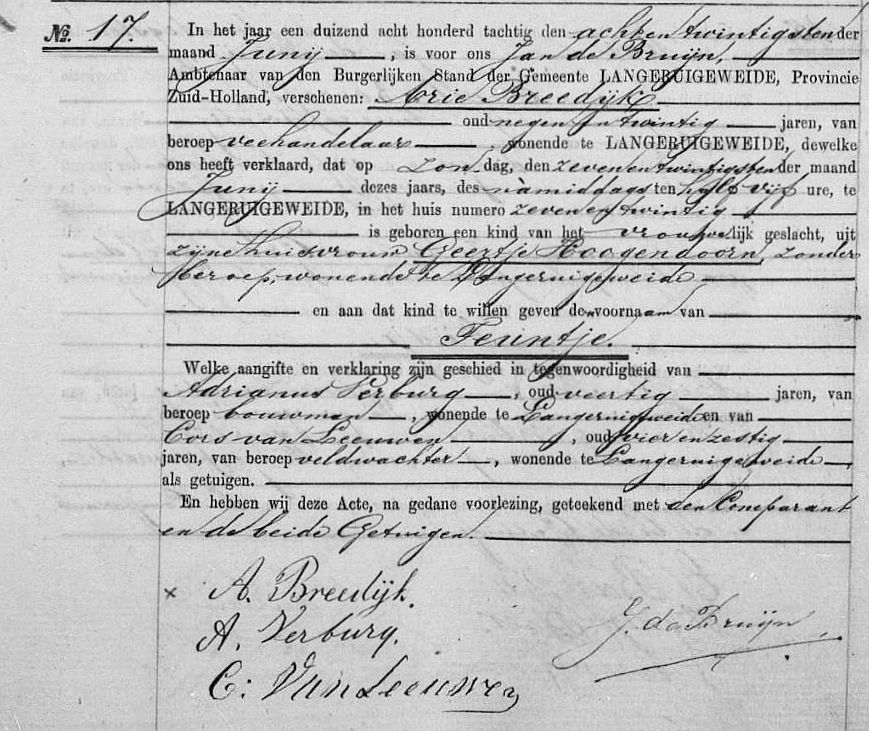 No. 17.
In het jaar een duizend acht honderd tachtig den achtentwintigsten der
maand Junij, is voor ons Jan de Bruijn,
Ambtenaar van den Burgerlijken Stand der Gemeente LANGERUIGEWEIDE, Provincie
Zuid-Holland, verschenen: Arie Breedijk
oud negen en twintig jaren, van
beroep veehandelaar, wonende te LANGERUIGEWEIDE, dewelke
ons heeft verklaard, dat op zondag, den zevenentwintigsten der maand
Junij dezes jaars, des namiddags ten half vijf ure, te
LANGERUIGEWEIDE, in het huis numero zevenentwintig
is geboren een kind van het vrouwelijk geslacht, uit
zijne huisvrouw Geertje Hoogendoorn, zonder
beroep, wonende te Langeruigeweide
en aan dat kind te willen geven den voornaam van
Teuntje.
Welke aangifte en verklaring zijn geschied in tegenwoordigheid van
Adrianus Verburg, oud veertig jaren, van
beroep bouwman, wonende te Langeruigeweide en van
Cors van Leeuwen, oud vier en zestig
jaren, van beroep veldwachter, wonende te Langeruigeweide,
als getuigen.
En hebben wij deze Acte, na gedane voorlezing, geteekend met den Comparant
en de beide Getuigen.
x A. Breedijk.
A. Verburg.
J. de Bruijn
C: Van Leeuwen